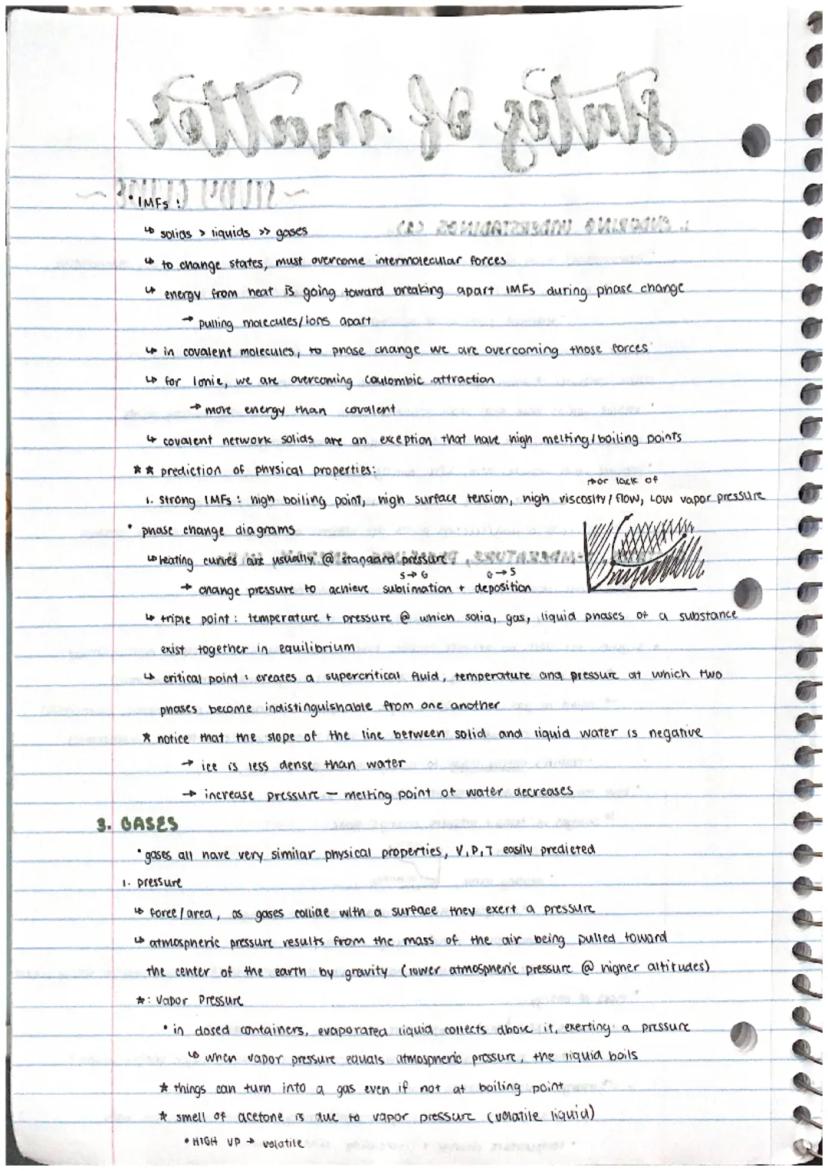 • IMFs :
↳ solids > liquids >> gases
↳ to change states, must overcome intermolecular forces
↳ energy from heat is going toward breaking apart IMFs during phase change
→ pulling molecules/ions apart
↳ in covalent molecules, to phase change we are overcoming those forces
↳ for Ionic, we are overcoming coulombic attraction
→ more energy than covalent
↳ covalent network solids are an exception that have high melting/boiling points
** prediction of physical properties:
→ or lack of
1. strong IMFs : high boiling point, high surface tension, high viscosity/flow, LOW vapor pressure
• phase change diagrams
↳ heating curves are usually @ standard pressure
S→G G→S
→ change pressure to achieve sublimation + deposition
↳ triple point : temperature + pressure @ which solid, gas, liquid phases of a substance
exist together in equilibrium
↳ critical point : creates a supercritical fluid, temperature and pressure at which two
phases become indistinguishable from one another
* notice that the slope of the line between solid and liquid water is negative
→ ice is less dense than water
→ increase pressure — melting point of water decreases
3. GASES
• gases all have very similar physical properties, V,P,T easily predicted
1. pressure
↳ force/area, as gases collide with a surface they exert a pressure
↳ atmospheric pressure results from the mass of the air being pulled toward
the center of the earth by gravity (lower atmospheric pressure @ higher altitudes)
*: Vapor Pressure
• in closed containers, evaporated liquid collects above it, exerting a pressure
↳ when vapor pressure equals atmospheric pressure, the liquid boils
* things can turn into a gas even if not at boiling point
* smell of acetone is due to vapor pressure (volatile liquid)
• HIGH VP → volatile